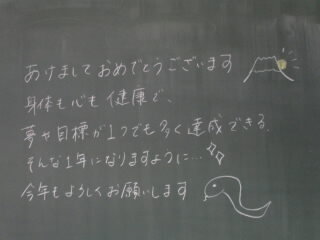 あけましておめでとうございます
身体も心も健康で、
夢や目標が1つでも多く達成できる、
そんな1年になりますように…
今年もよろしくお願いします